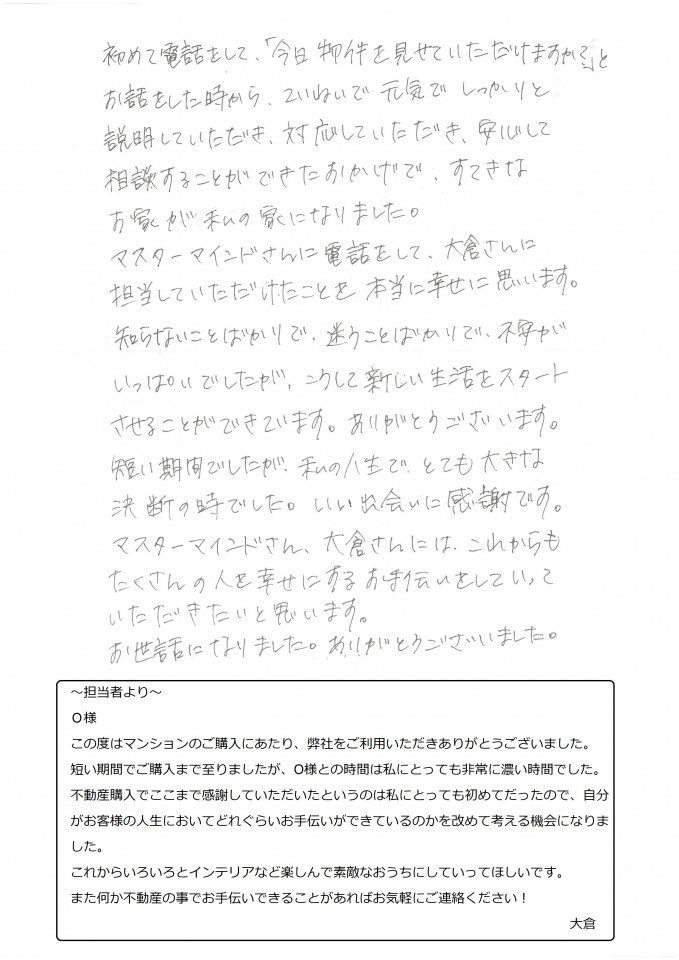 初めて電話をして、「今日物件を見せていただけますか?」と
お話をした時から、ていねいで元気でしっかりと
説明していただき、対応していただき、安心して
相談することができたおかげで、すてきな
お家が私の家になりました。
マスターマインドさんに電話をして、大倉さんに
担当していただけたことを本当に幸せに思います。
知らないことばかりで、迷うことばかりで、不安が
いっぱいでしたが、こうして新しい生活をスタート
させることができています。ありがとうございます。
短い期間でしたが、私の人生で、とても大きな
決断の時でした。いい出会いに感謝です。
マスターマインドさん、大倉さんには、これからも
たくさんの人を幸せにするお手伝いをしていって
いただきたいと思います。
お世話になりました。ありがとうございました。
~担当者より~
O様
この度はマンションのご購入にあたり、弊社をご利用いただきありがとうございました。
短い期間でご購入まで至りましたが、O様との時間は私にとっても非常に濃い時間でした。
不動産購入でここまで感謝していただいたというのは私にとっても初めてだったので、自分
がお客様の人生においてどれぐらいお手伝いができているのかを改めて考える機会になりま
した。
これからいろいろとインテリアなど楽しんで素敵なおうちにしていってほしいです。
また何か不動産の事でお手伝いできることがあればお気軽にご連絡ください!
大倉